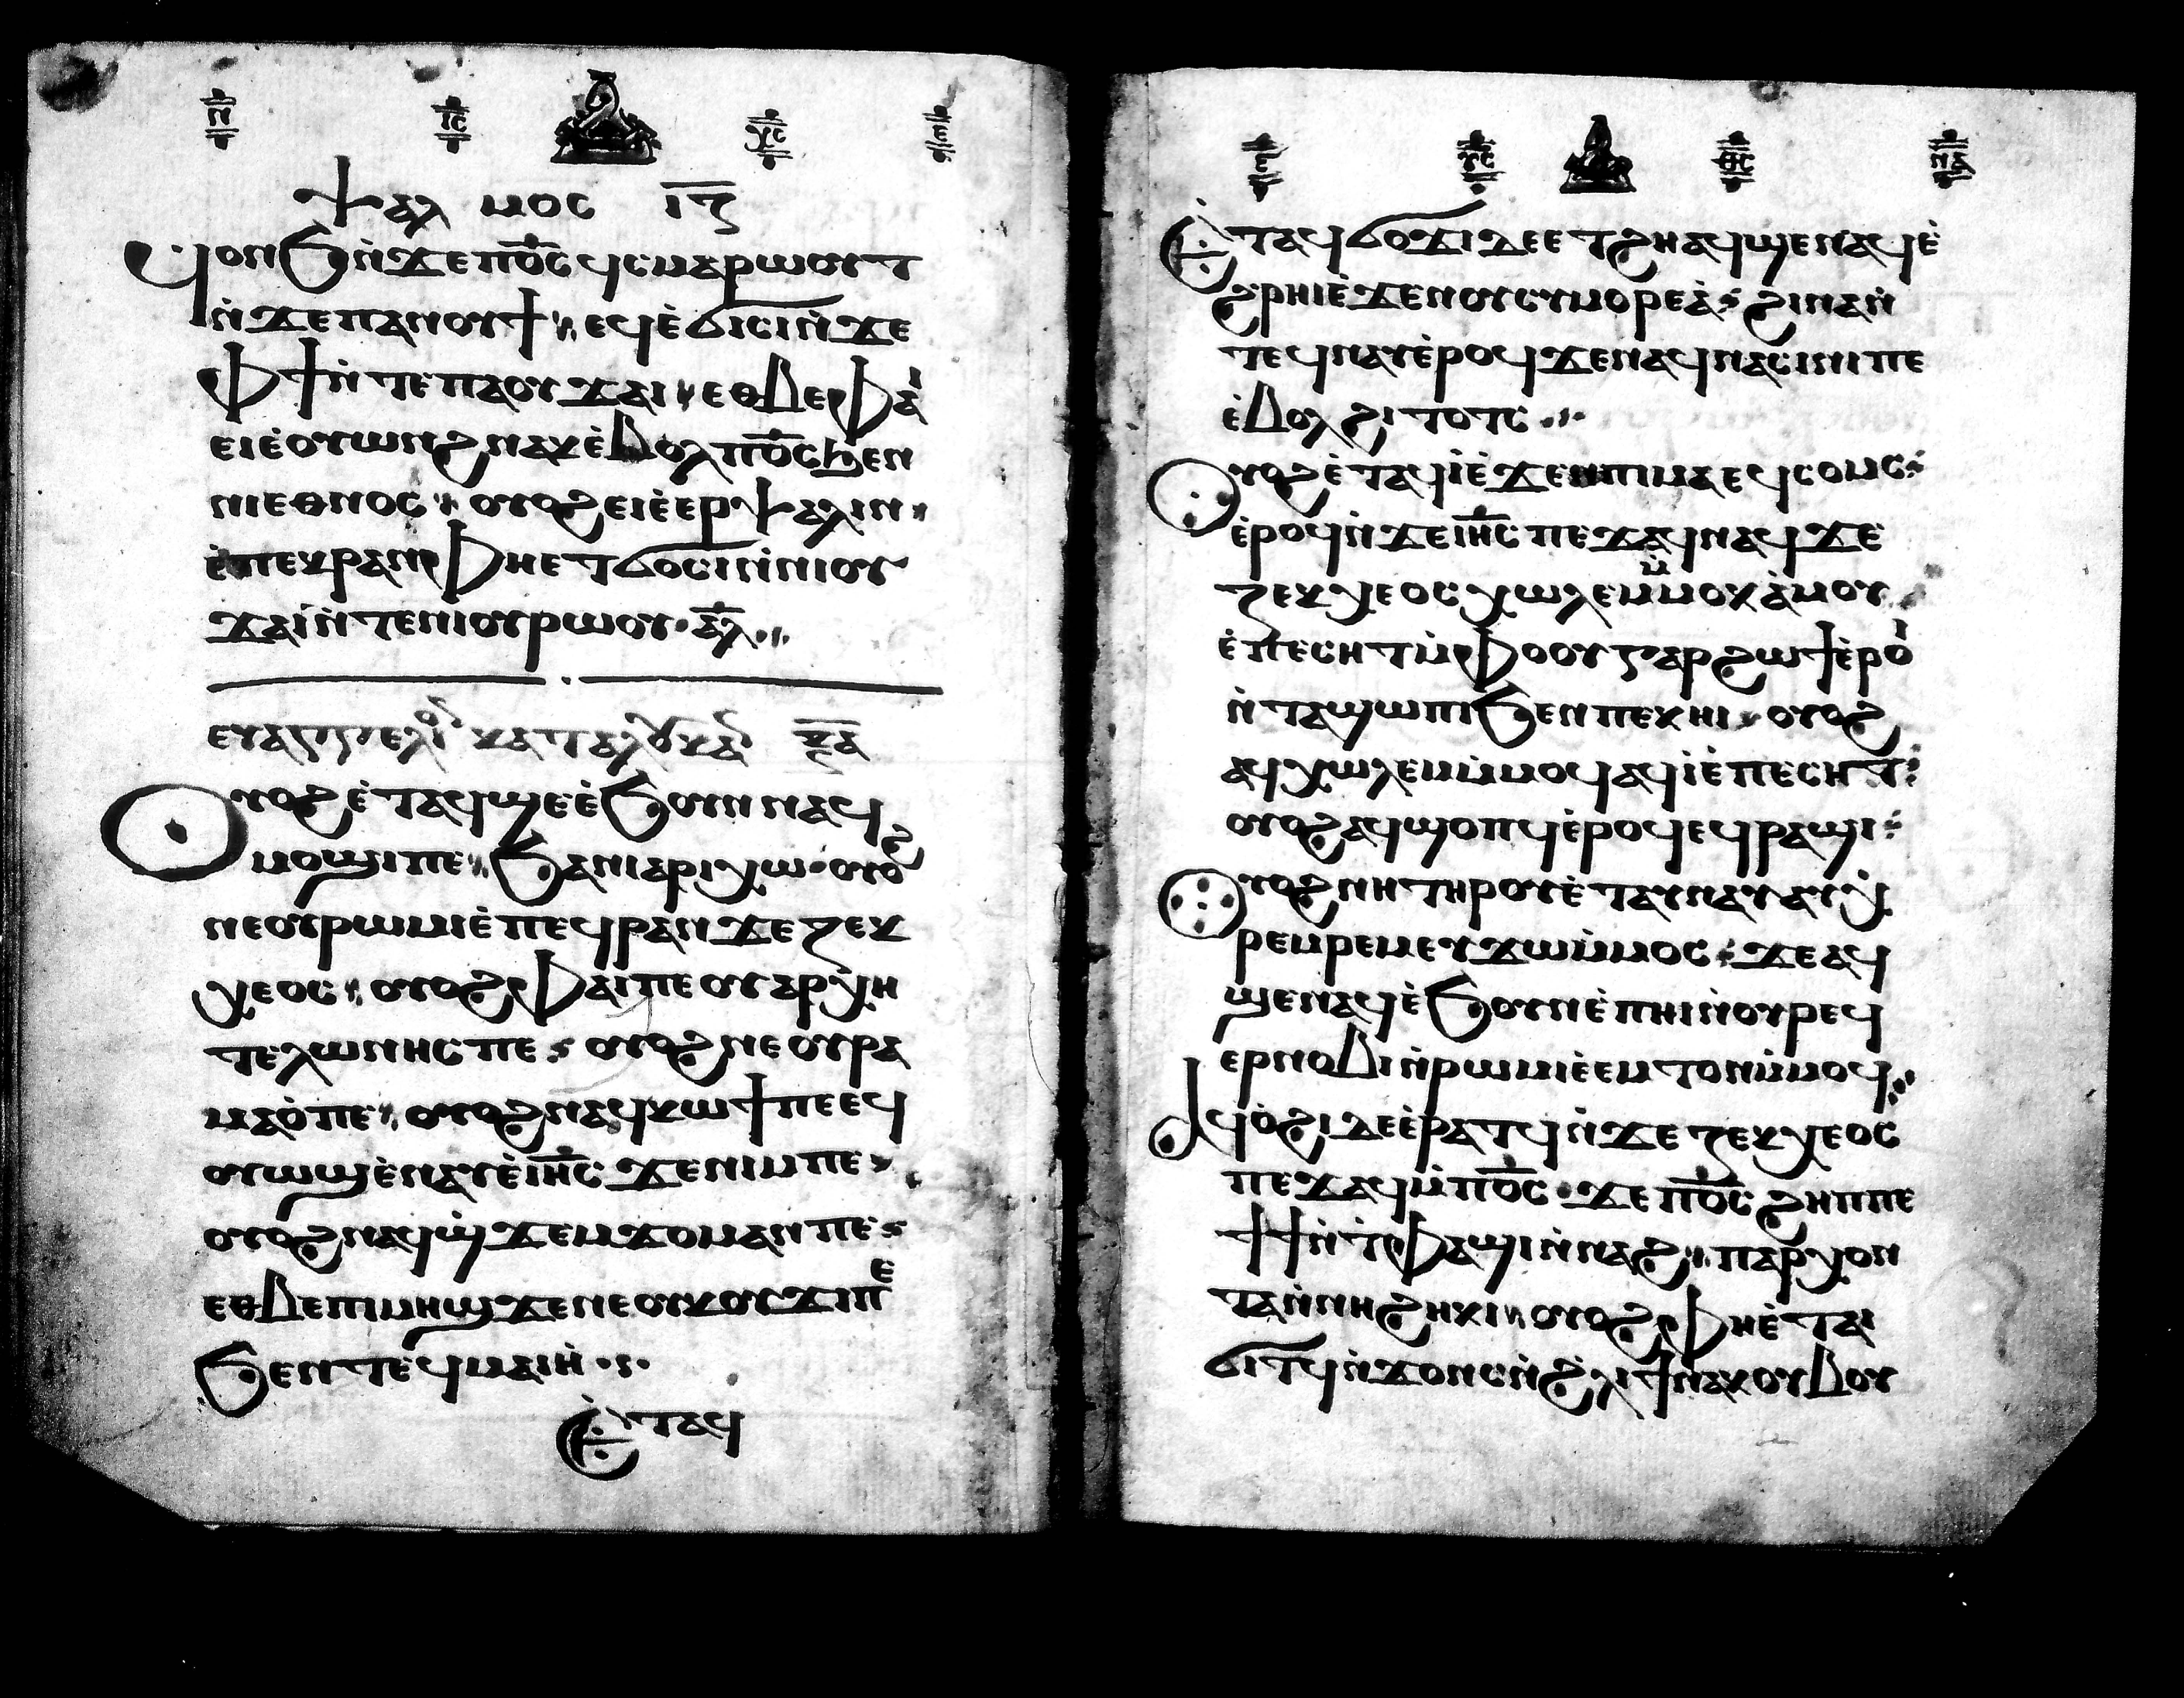 ⲡ̅ ⲓ̅ⲥ̅ ⲭ̅ⲥ̅
ⲯⲁⲗ ⲙⲟⲥ ⲓ̅ⲍ̅
ϥⲟⲛϧⲛ̀ϫⲉⲡⲟ̅ⲥ̅ϥⲥⲙⲁⲣⲱⲟⲩⲧ
ⲛ̀ϫⲉⲡⲁⲛⲟⲩϯ ⲉϥⲉ̀ϭⲓⲥⲓⲛ̀ϫⲉ
ⲫϯⲛ̀ⲧⲉⲡⲁⲟⲩϫⲁⲓ ⲉⲑⲃⲉⲫⲁ̀
ⲉⲓⲉ̀ⲟⲩⲱⲛϩⲛⲁⲕⲉ̀ⲃⲟⲗⲡⲟ̅ⲥ̅ϧⲉⲛ
ⲛⲓⲉⲑⲛⲟⲥ ⲟⲩⲟϩⲉⲓⲉ̀ⲉⲣⲯⲁⲗⲓⲛ
ⲉ̀ⲡⲉⲕⲣⲁⲛⲫⲏⲉⲧϭⲟⲥⲓⲛ̀ⲛⲓⲟⲩ
ϫⲁⲓⲛ̀ⲧⲉⲛⲓⲟⲩⲣⲱⲟⲩ ⲁ̅ⲗ̅
ⲉⲩⲁⲅⲅⲉⲗⲓⲟⲛ ⲕⲁⲧⲁⲗⲟⲩⲕⲁⲛ ⲝ̅ⲁ̅
Ⲟⲩⲟϩⲉ̀ⲧⲁϥϣⲉⲉ̀ϧⲟⲩⲛⲛⲁϥ
ⲙⲟϣⲓⲡⲉ ϧⲁⲛⲓⲁⲣⲓⲭⲱ ⲟⲩⲟϩ
ⲛⲉⲟⲩⲣⲱⲙⲓⲉ̀ⲡⲉϥⲣⲁⲛϫⲉⲍⲉⲕ
ⲭⲉⲟⲥ ⲟⲩⲟϩⲫⲁⲓⲡⲉⲟⲩⲁⲣⲭⲏ
ⲧⲉⲗⲱⲛⲏⲥⲡⲉ ⲟⲩⲟϩⲛⲉⲟⲩⲣⲁ
ⲙⲁⲟ̀ⲡⲉ ⲟⲩⲟϩⲛⲁϥⲕⲱϯⲡⲉⲉϥ
ⲟⲩⲱϣⲉ̀ⲛⲁⲩⲉ̀ⲓⲏ̅ⲥ̅ ϫⲉⲛⲓⲙⲡⲉ
ⲟⲩⲟϩⲛⲁϥϣ̀ϫⲉⲙϫⲟⲙⲁⲛⲡⲉ
ⲉⲑⲃⲉⲡⲓⲙⲏϣϫⲉⲛⲉⲟⲩⲕⲟⲩϫⲓⲡⲉ
ϧⲉⲛⲧⲉϥⲙⲁⲓⲏ̀
Ⲉ̀ⲧⲁϥ
ⲩ̅ⲥ̅ ⲑ̅ⲥ̅ ⲛ̅ⲇ̅
Ⲉ̀ⲧⲁϥϭⲟϫⲓⲇⲉⲉⲧϩⲏⲁϥϣⲉⲛⲁϥⲉ̀
ϩⲣⲏⲓⲉ̀ϫⲉⲛⲟⲩⲥⲩⲙⲟⲣⲉⲁ̀ ϩⲓⲛⲁⲛ̀
ⲧⲉϥⲛⲁⲩⲉ̀ⲣⲟϥϫⲉⲛⲁϥⲛⲁⲥⲓⲛⲓⲡⲉ
ⲉ̀ⲃⲟⲗϩⲓⲧⲟⲧⲥ
Ⲟⲩⲟϩⲉ̀ⲧⲁϥⲓ̀ⲉ̀ϫⲉⲛⲡⲓⲙⲁⲉϥⲥⲟⲙⲥ
ⲉ̀ⲣⲟϥⲛ̀ϫⲉⲓⲏ̅ⲥ̅ⲡⲉϫⲁϥⲛⲁϥϫⲉ
ⲍⲉⲕⲭⲉⲟⲥⲭⲱⲗⲉⲙⲙ̀ⲙⲟⲕⲁ̀ⲙⲟⲩ
ⲉ̀ⲡⲉⲥⲏⲧⲙ̀ⲫⲟⲟⲩⲅⲁⲣϩⲱϯⲉ̀ⲣⲟⲓ̀
ⲛ̀ⲧⲁϣⲱⲡⲓϧⲉⲛⲡⲉⲕⲏⲓ ⲟⲩⲟϩ
ⲁϥⲭⲱⲗⲉⲙⲙ̀ⲙⲟϥⲁϥⲓ̀ⲉ̀ⲡⲉⲥⲏⲧ
ⲟⲩⲟϩⲁϥϣⲟⲡϥⲉ̀ⲣⲟϥⲉϥⲣⲁϣⲓ
Ⲟⲩⲟϩⲛⲏⲧⲏⲣⲟⲩⲉ̀ⲧⲁⲩⲛⲁⲩⲁⲩⲭ̀
ⲣⲉⲙⲣⲉⲙⲉⲩϫⲱⲙ̀ⲙⲟⲥ ϫⲉⲁϥ
ϣⲉⲛⲁϥⲉ̀ϧⲟⲩⲛⲉ̀ⲡⲏⲓⲛ̀ⲟⲩⲣⲉϥ
ⲉⲣⲛⲟⲃⲓⲛ̀ⲣⲱⲙⲓⲉ̀ⲉⲙⲧⲟⲛⲙ̀ⲙⲟϥ
Ⲁϥⲟ̀ϩⲓⲇⲉⲉ̀ⲣⲁⲧϥⲛ̀ϫⲉⲍⲉⲕⲭⲉⲟⲥ
ⲡⲉϫⲁϥⲙ̀ⲡⲟ̅ⲥ̅ ϫⲉⲡⲟ̅ⲥ̅ϩⲏⲡⲡⲉ
ϯϯⲛ̀ⲧ̀ⲫⲁϣⲓⲛ̀ⲛⲁϩ ⲡⲁⲣⲭⲟⲛ
ⲧⲁⲛ̀ⲛⲏϩⲏⲕⲓ ⲟⲩⲟϩⲫⲏⲉ̀ⲧⲁⲓ
ϭⲓⲧϥⲛ̀ϫⲟⲛⲥⲛ̀ϩ̀ⲗⲓϯⲛⲁⲕⲟⲩⲃⲟⲩ